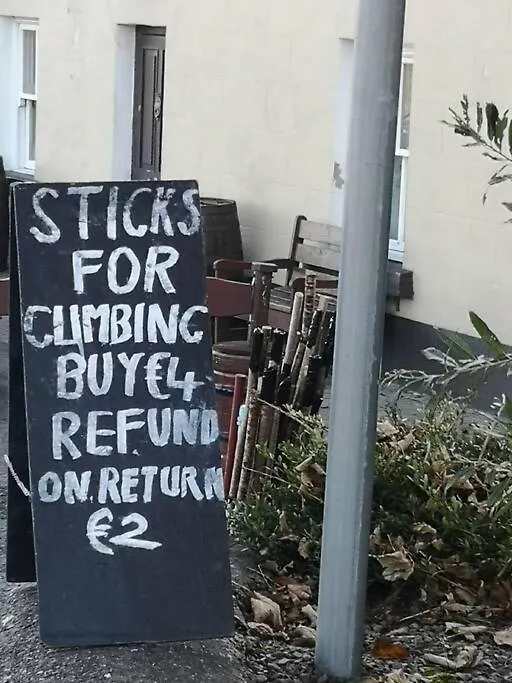 STICKS
FOR
CLIMBING
BUY €4
REFUND
ON RETURN
€2